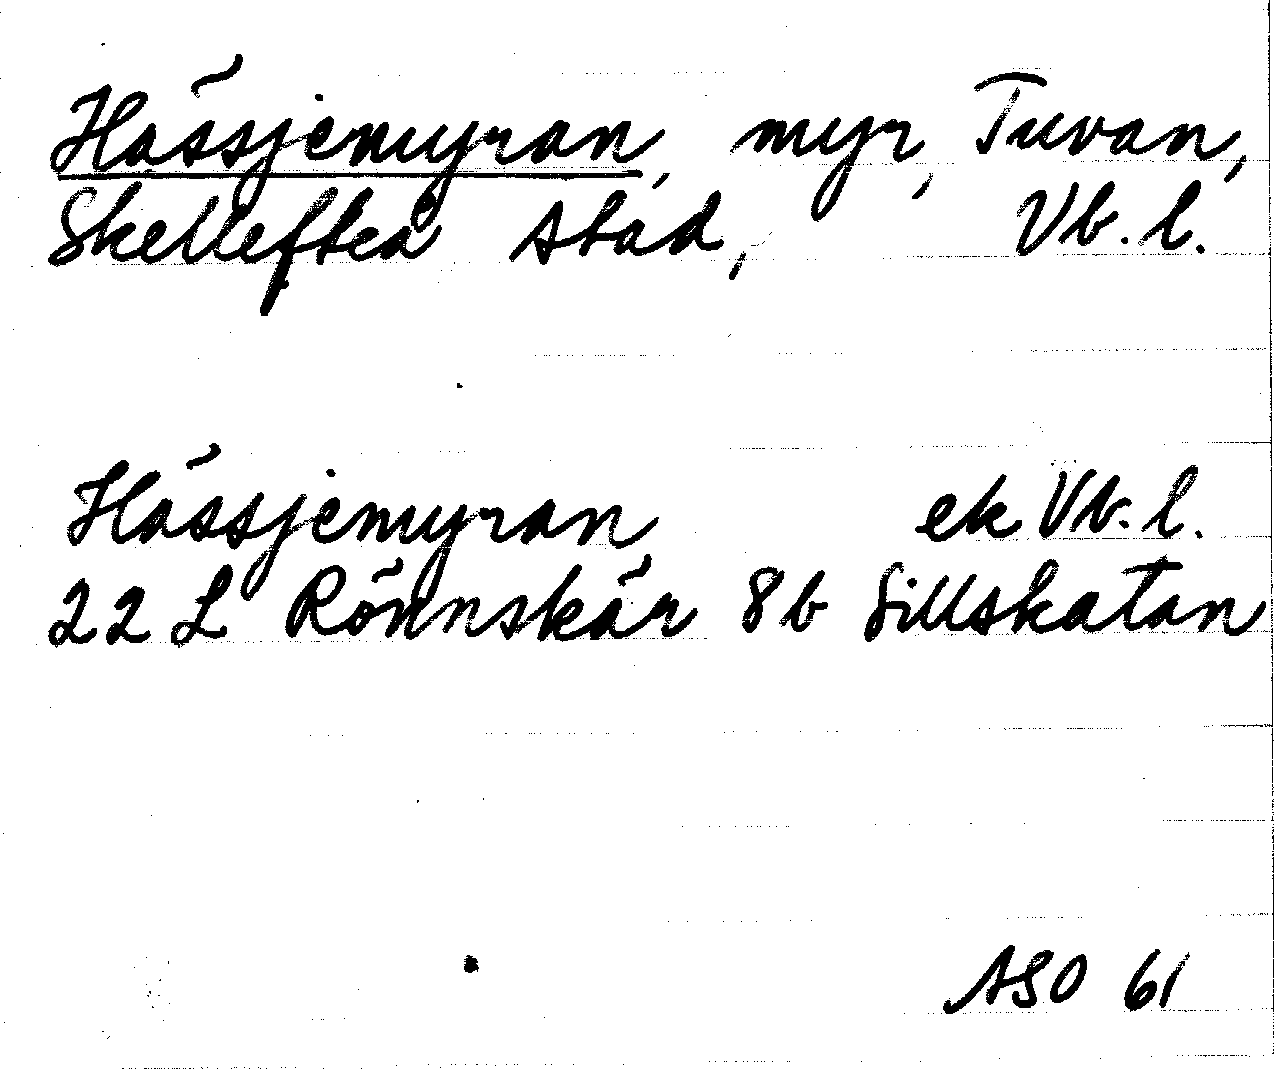 Hässjemyran, myr, Tuvan,
Skellefteå stad, Vb. l.
Hässjemyran ek Vb. l.
22 L Rönnskär 8b Sillskatan
ASO 61